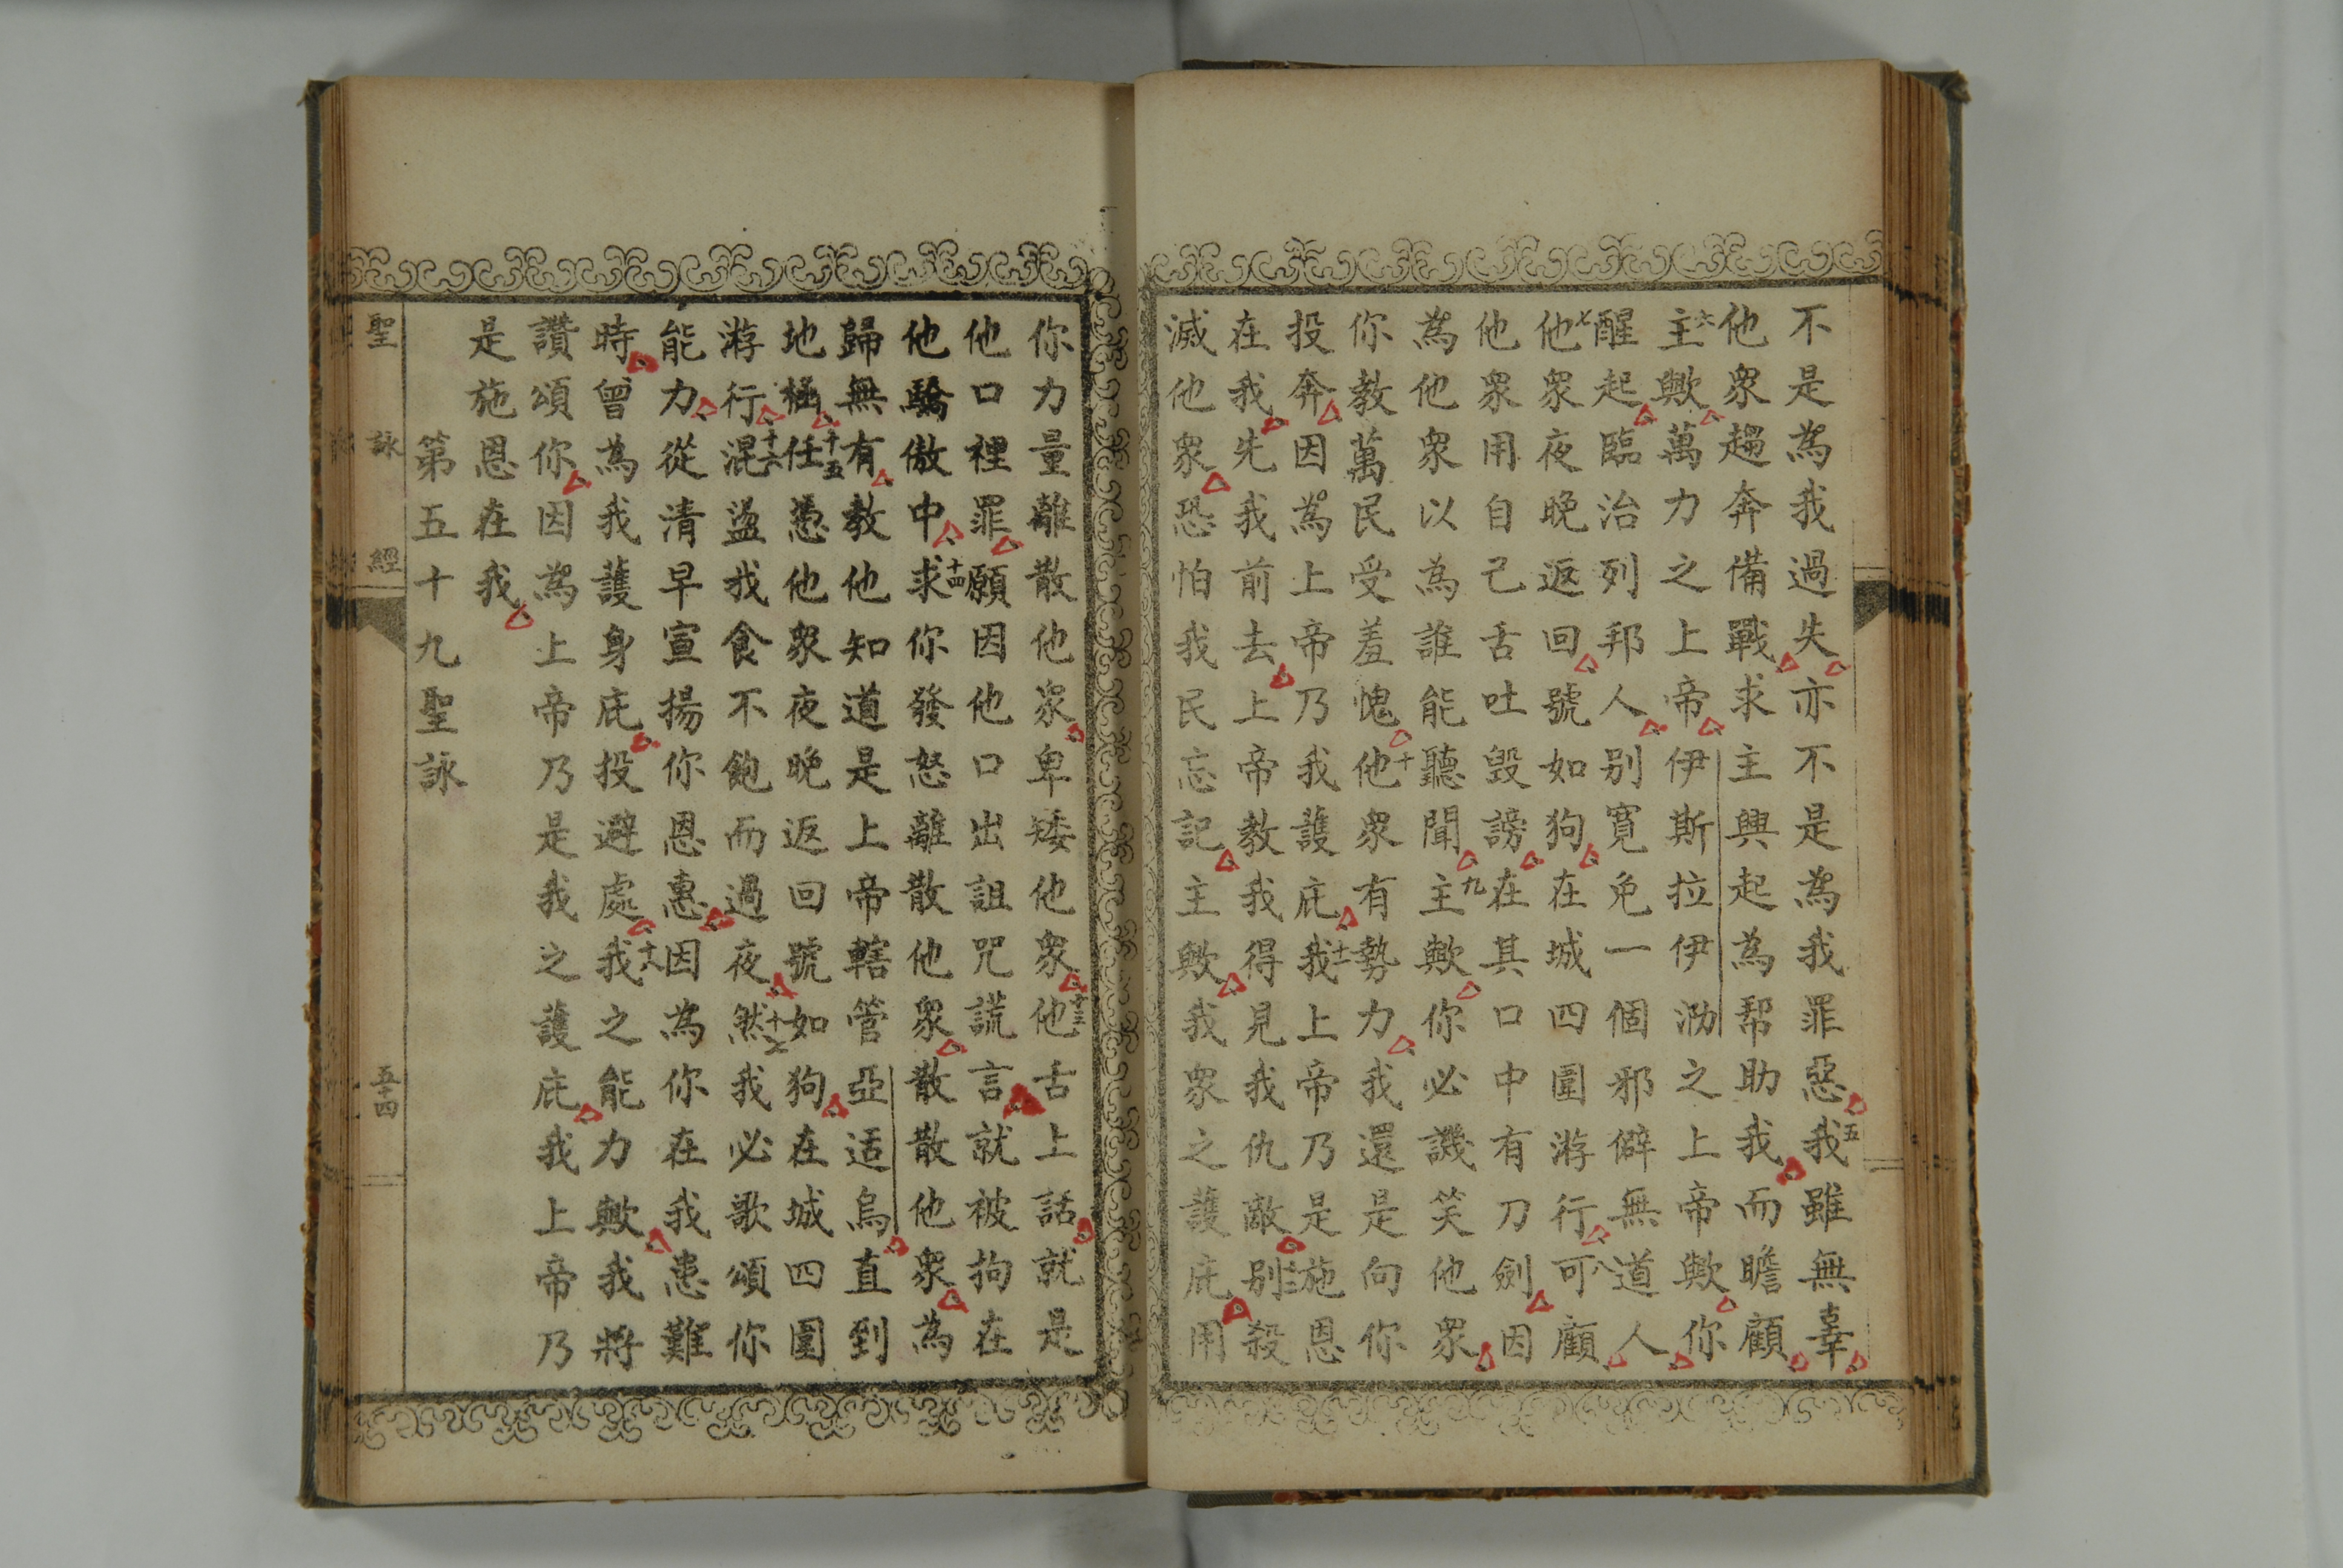 不是為我過失亦不是為我罪惡五我雖無辜
他衆趨奔備戰求主興起為幫助我而瞻顧
六主歟萬力之上帝伊斯拉伊泐之上帝歟你
醒起臨治列邦人別寬免一個邪僻無道人
七他衆夜晚返回號如狗在城四圍游行八可顧
他衆用自己舌吐毀謗在其口中有刀劍因
為他衆以為誰能聽聞九主歟你必譏笑他衆
你教萬民受羞愧十他衆有勢力我還是向你
投奔因為上帝乃我護庇十一我上帝乃是施恩
在我先我前去上帝教我得見我仇敵十二別殺
滅他衆恐怕我民忘記主歟我衆之護庇用
你力量離散他衆卑矮他衆十三他舌上話就是
他口裡罪願因他口出詛咒謊言就被拘在
他驕傲中十四求你發怒離散他衆散散他衆為
歸無有教他知道是上帝轄管亞适烏直到
地極十五任憑他衆夜晚返回號如狗在城四圍
游行十六混盪找食不飽而過夜十七然我必歌頌你
能力從清早宣揚你恩惠因為你在我患難
時曾為我護身庇投避處十八我之能力歟我將
讚頌你因為上帝乃是我之護庇我上帝乃
是施恩在我
第五十九聖詠
聖詠經
五十四